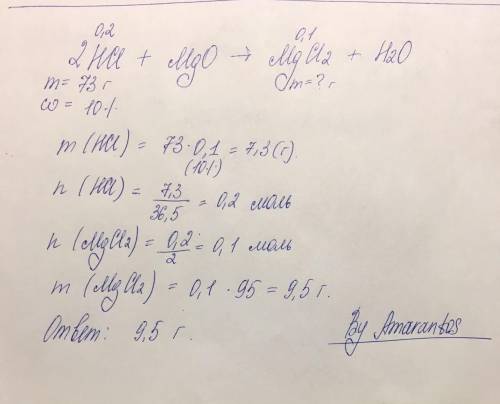 0,2 0,1
2HCl + MgO → MgCl2 + H2O
m = 73 г m = ? г
ω = 10%
m (HCl) = 73 · 0,1 = 7,3 (г).
(10%)
n (HCl) = 7,3/36,5 = 0,2 моль
n (MgCl2) = 0,2/2 = 0,1 моль
m (MgCl2) = 0,1 · 95 = 9,5 г.
Ответ: 9,5 г.
By Amarantos